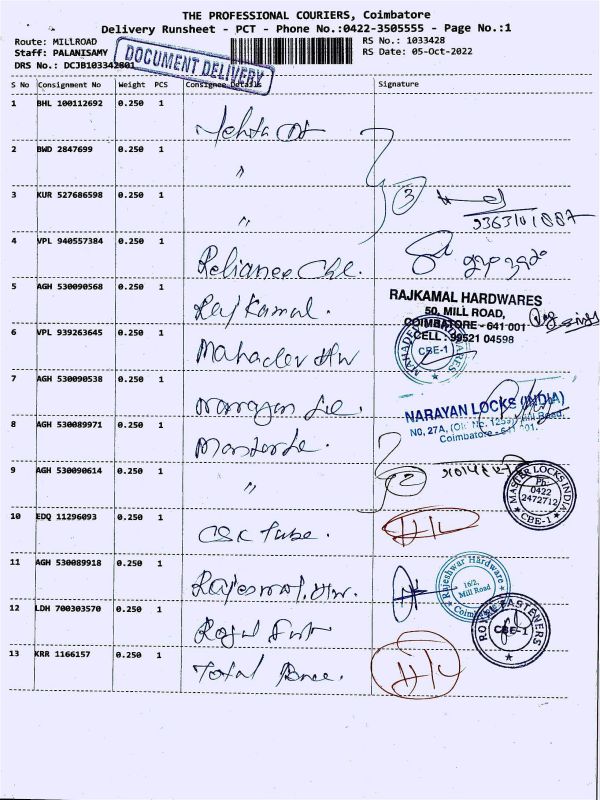 THE PROFESSIONAL COURIERS, Coimbatore
Delivery Runsheet - PCT - Phone No.:0422-3505555 - Page No.:1
Route: MILLROAD
RS No.: 1033428
Staff: PALANISAMY
RS Date: 05-Oct-2022
DRS No.: DCJB103342801
DOCUMENT DELIVERY
S No Consignment No Weight PCS Consignee Details Signature
1 BHL 100112692 0.250 1 Mehta
2 BWD 2847699 0.250 1 "
3 KUR 527686598 0.250 1 " 3
9363101887
4 VPL 940557384 0.250 1 Reliance
5 AGH 530090568 0.250 1 Raj Kamal.
RAJKAMAL HARDWARES
50, MILL ROAD,
COIMBATORE - 641 001
CELL: 99521 04598
6 VPL 939263645 0.250 1 Mahadev Hw
CBE-1
7 AGH 530090538 0.250 1 Narayan
NARAYAN LOCKS (INDIA)
NO, 27A, (Old No. 1259) Mill Road,
Coimbatore - 641 001.
8 AGH 530089971 0.250 1 Master
9 AGH 530090614 0.250 1 " 2
MASTER LOCKS INDIA
Ph:
0422
2472712
CBE-1
10 EDQ 11296093 0.250 1 CSK Tube.
11 AGH 530089918 0.250 1 Rajeswar. Hw.
Rajeshwar Hardware
16/2,
Mill Road
12 LDH 700303570 0.250 1 Royal
ROYAL FASTENERS
CBE-1
13 KRR 1166157 0.250 1 Total